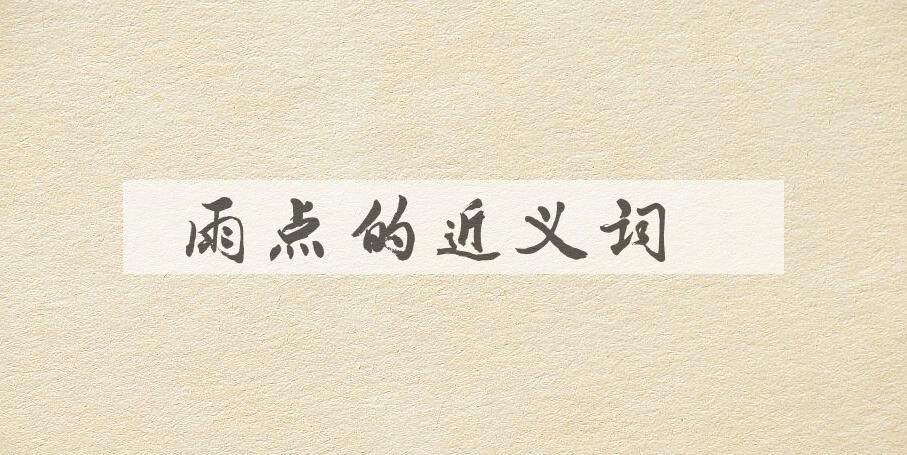 雨点的近义词